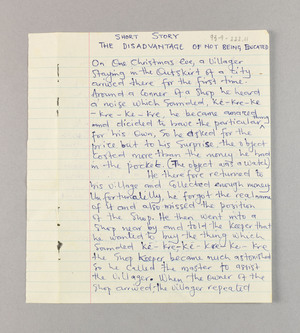 SHORT STORY
THE DISADVANTAGE OF NOT BEING EDUCATED
On One Christmas Eve, a villager
Staying in the Outskirt of a City
arrived there for the first time.
Around a Corner of a Shop he heard
a noise which Sounded, Ke-Kre-Ke
-Kre-Ke-Kre, he became amazed
and decided to have the particular thing
for his Own, So he asked for the
price but to his Surprise, the object
Costed more than the money he had
in the pocket. (The object was a watch)
He therefore returned to
his village and Collected enough money
Unfortunately, he forgot the real name
of it and also missed the position
of the Shop. He then went into a
Shop near by and told the Keeper that
he wanted to buy the thing which
Sounded Ke-Kre-Ke-Kre-Ke-Kre
the Shop Keeper became much astonished
So he Called the master to assist
the villager. When the Owner of the
Shop arrived, the villager repeated